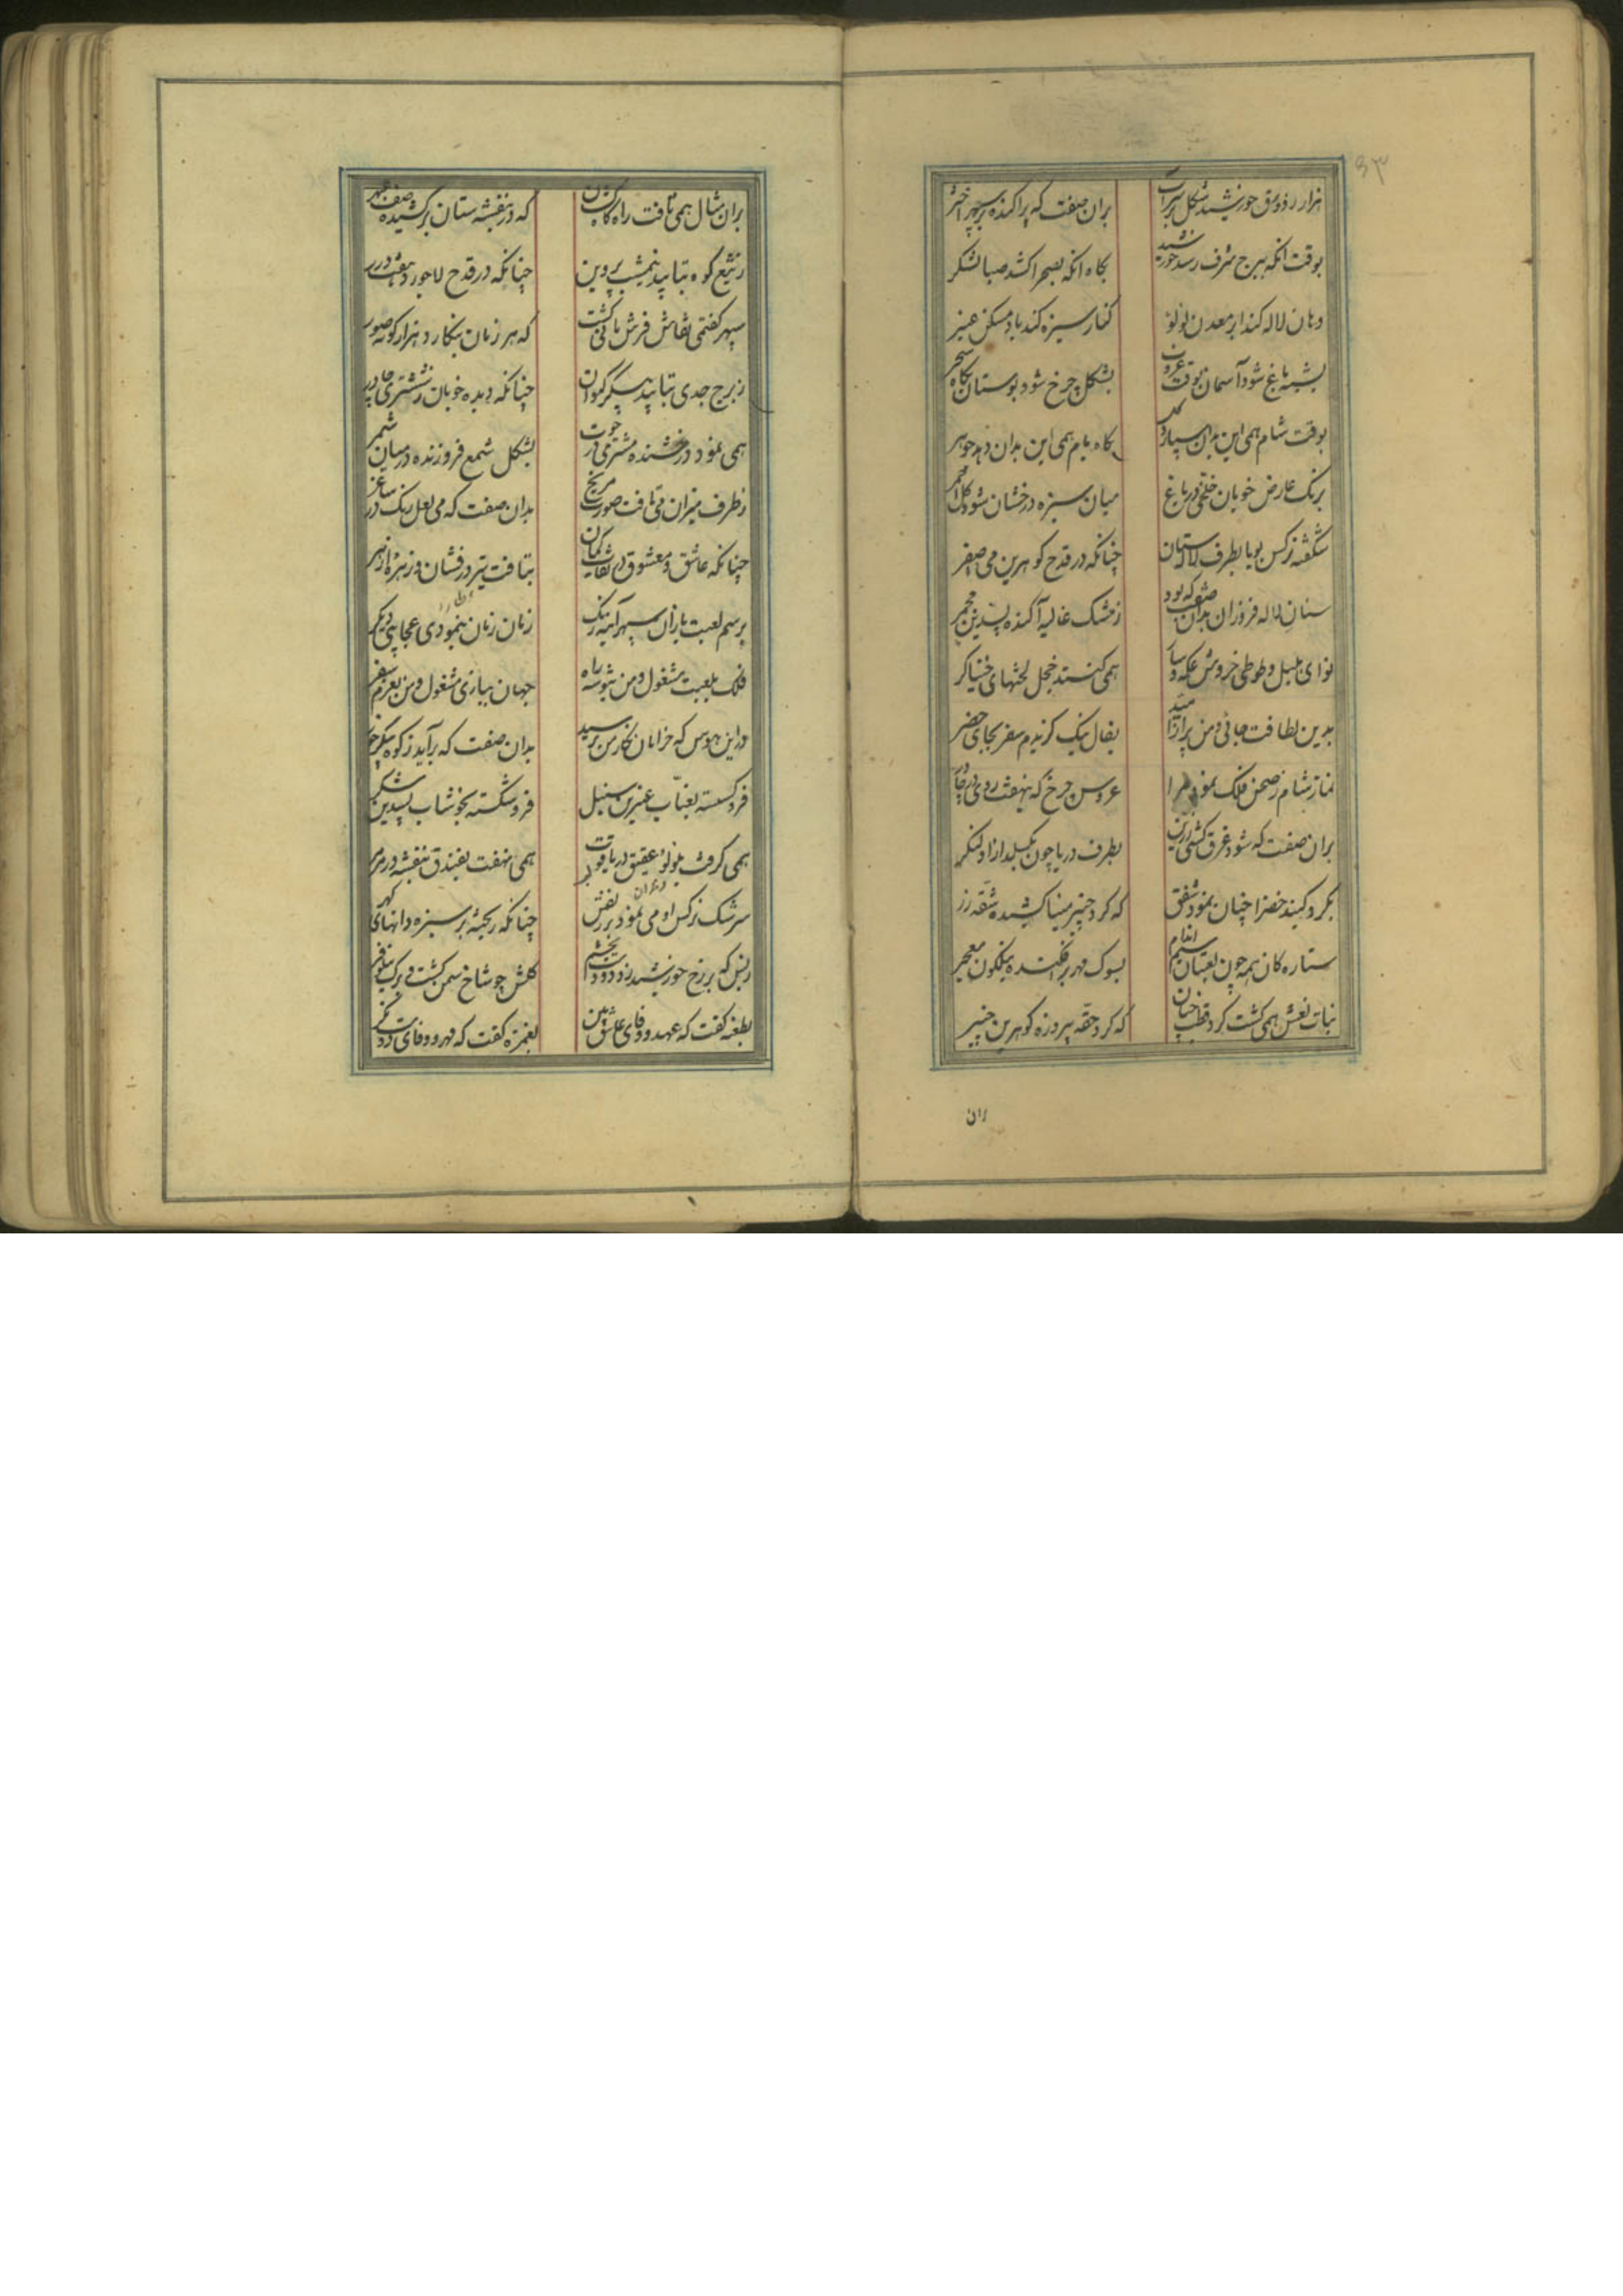 ۵۳
هزار زورق خورشید شکل بر سر آب
بران صفت که پراکنده بر سپهر اختر
بوقت انکه ببرج شرف رسد خورشید
بکاه انکه بصحرا کشد صبا لشکر
دهان لاله کند ابر معدن لولو
کنار سبزه کند باد مسکن عنبر
بشبه باغ شود آسمان بوقت غروب
بشکل چرخ شود بوستان بکاه سحر
بوقت شام همی این بدان سپارد کل
بکاه بام همی این بدان دهد جوهر
برنک عارض خوبان خلخی در باغ
میان سبزه درخشان شود کل احمر
شکفته نرکس بویا بطرف لالستان
چنانکه در قدح کوهرین می اصفر
ستان لاله فروزان بدان صفت که بود
ز مشک غالیه آکنده بسدین مجمر
نوای بلبل و طوطی خروش عکه و سار
همی کنند خجل لحنهای خنیاکر
بدین لطافت جائی و من براز امید
بفال نیک کزیدم سفر بجای حضر
نماز شام ز صحن فلک نمود مرا
عروس چرخ که بنهفت روی در چادر
بران صفت که شود غرق کشتی زرین
بطرف دریا چون بکسلد ازاو لنکر
بکرد کنبد خضرا چنان نمود شفق
که کرد خیمه مینا کشیده شقه زر
ستاره کان همه چون لعبتان سیم اندام
بسوک مهر بر فکنده نیلکون معجر
بنات نعش همی کشت کرد قطب چنان
که کرد حقه پیروزه کوهرین چنبر
بران
بران مثال همی تافت راه کاه کشان
که در بنفشه ستان برکشیده صف عبهر
ز تیغ کوه بتابید نیمشب پروین
چنانکه در قدح لاجورد هفت درر
سپهر کفتی نقاش نقش مانی کشت
که هر زمان بنکارد هزار کونه صور
ز برج جدی بتابید پیکر کیوان
چنانکه دیده خوبان ز عنبرین چادر
همی نمود درخشنده مشتری در حوت
بشکل شمع فروزنده در میان شمر
ز طرف میزان می تافت صورت مریخ
بدان صفت که می لعل رنک در ساغر
چنانکه عاشق و معشوق در نقاب کمان
بتافت تیر درفشان و زهره ازهر
برسم لعبت بازان سپهر آینه رنک
زمان زمان بنمودی عجایبی دیکر
فلک بلعبت مشغول و من بتوشه راه
جهان ببازی مشغول و من بعزم سفر
در این هوس که خرامان نکار من برسید
بدان صفت که برآید ز کوه پیکر خور
فرو کسسته بعناب عنبرین سنبل
فرو شکسته بخوشاب بسدین شکر
همی کرفت بلولو عقیق در یاقوت
همی نهفت بفندق بنفشه در مرمر
سرشک نرکس او می نمود بر زلفش
چنانکه ریخته بر سبزه دانهای کهر
ز بس که بر رخ خورشید زد دو دست بخشم
کلش چو شاخ سمن کشت و برک نیلوفر
بطعنه کفت که عهد و وفای عاشق بین
بغمزه کفت که مهر و وفای دوست نکر